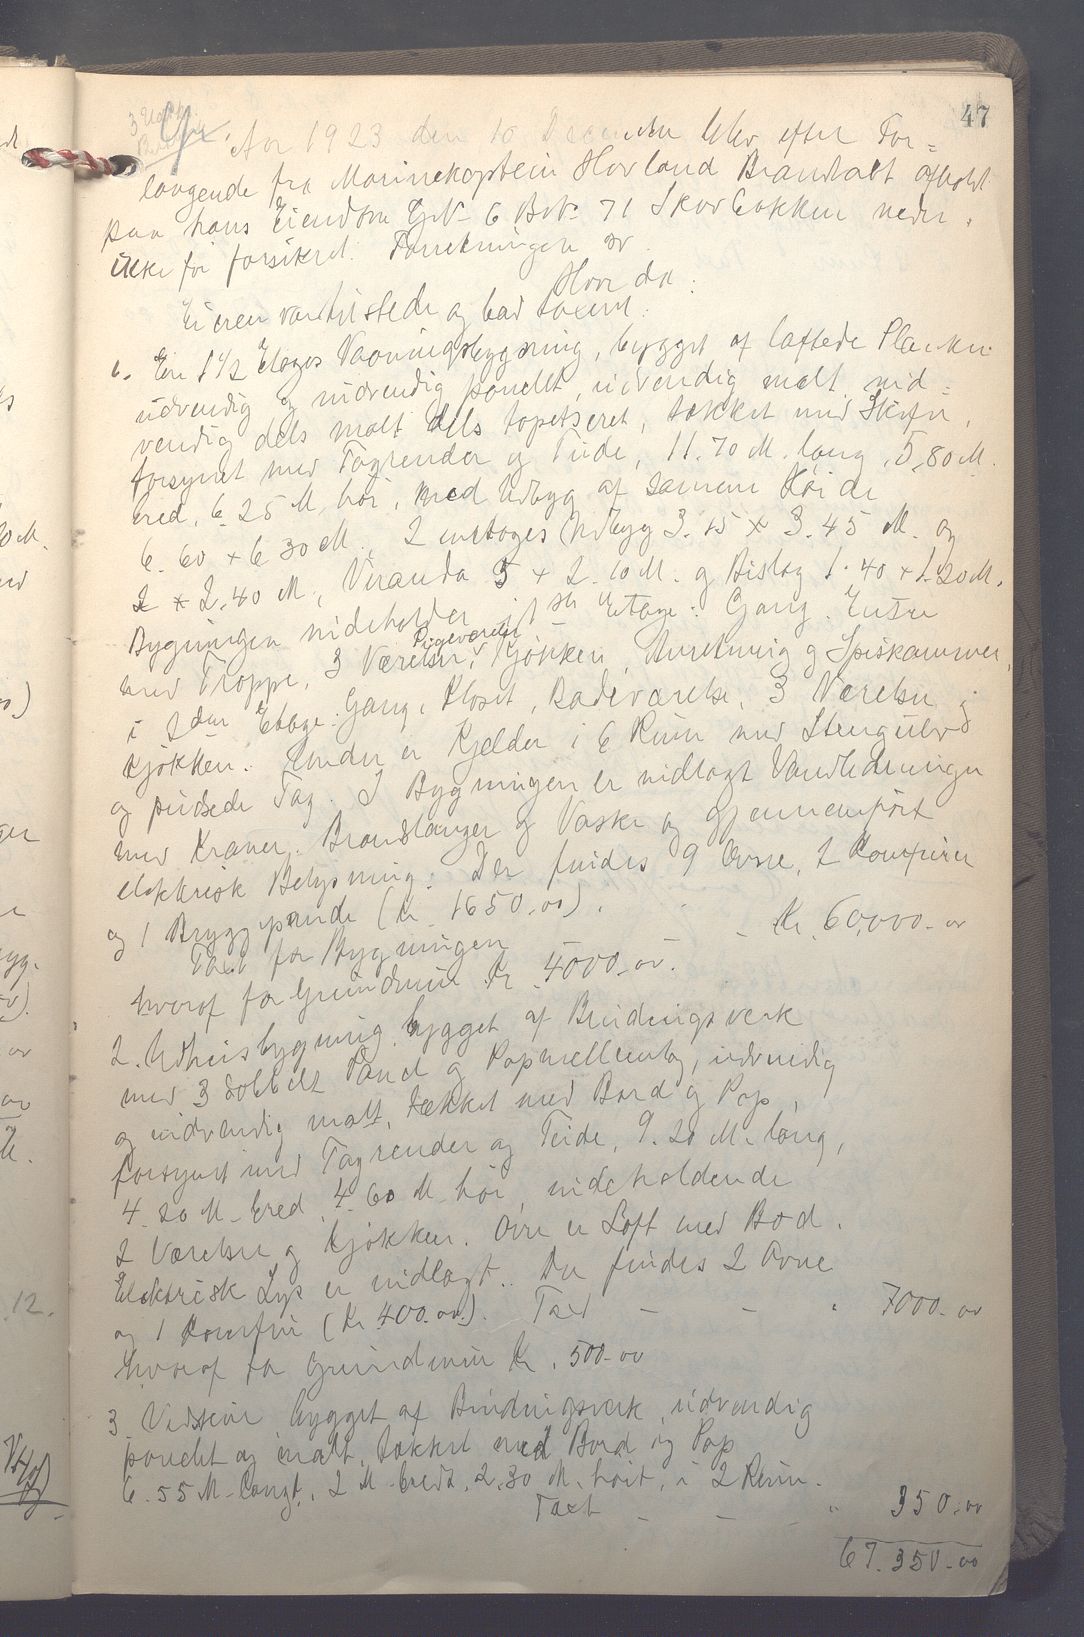 47
Aar 1923 den 10 December blev efter For=
langende fra Marinekaptein Hovland Brandtakt afholdt
paa hans Eiendom GrNo 6 BrNo 71 Skovbakken neder.
ikke før forsikret. Forretningen
Hvor da:
Eieren var tilstede og bad taxeret:
1. En 1 1/2 Etages Vaaningsbygning, bygget af laftede Planker
udvendig og indvendig panelet, udvendig malt, ind=
vendig dels malt dels tapetseret, tækket med Skifer,
forsynet med Tagrender og Tude, 11.70 M. lang, 5.80 M.
bred, 6.25 M. høi, med Udbyg af samme Høide
6.60 x 6.30 M., 2 enetages Udbyg 3.15 x 3.45 M. og
2 x 2.40 M., Veranda 5 x 2.10 M. og Bislag 1.40 x 1.20 M.
Bygningen indeholder i 1ste Etage: Gang, Entre
med Trappe, 3 Værelser, Pigeværelse, Kjøkken, Anretning og Spiskammer,
i 2den Etage: Gang, Kloset, Badeværelse, 3 Værelser og
Kjøkken. Under er Kjelder i 6 Rum med Stengulv
og pudsede Tag. I Bygningen er indlagt Vandledninger
med Kraner, Brandslanger og Vaske og gjennemført
elektrisk Belysning. Der findes 9 Ovne, 2 Komfurer
og 1 Bryggepande (Kr. 1650.00).
Taxt for Bygningen - - Kr. 60,000.00
hvoraf for Grundmur Kr. 4000.00.
2. Udhusbygning, bygget af Bindingsverk
med 3 dobbelt Panel og Papmellemlag, udvendig
og indvendig malt, tækket med Bord og Pap,
forsynet med Tagrender og Tude, 9.20 M. lang,
4.20 M. bred, 4.60 M. høi, indeholdende
2 Værelser og Kjøkken. Over er Loft med Bod.
Elektrisk Lys er indlagt. Der findes 2 Ovne
og 1 Komfur (Kr. 400.00). Taxt - - " 7000.00
hvoraf for Grundmur Kr. 500.00
3. Vedskur bygget af Bindingsverk, udvendig
panelet og malt, tækket med Bord og Pap
6.55 M. langt, 2 M. bredt, 2.30 M. høit, i 2 Rum.
Taxt - - - " 350.00
67.350.00